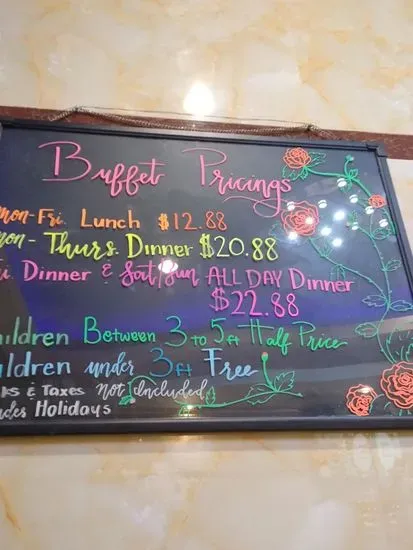 Buffet Pricings
mon-Fri. Lunch $12.88
mon- Thurs. Dinner $20.88
Dinner & Sat/Sun ALL DAY Dinner
$22.88
Children Between 3 to 5ft Half Price
Children under 3ft Free
& Taxes Not Included
Holidays